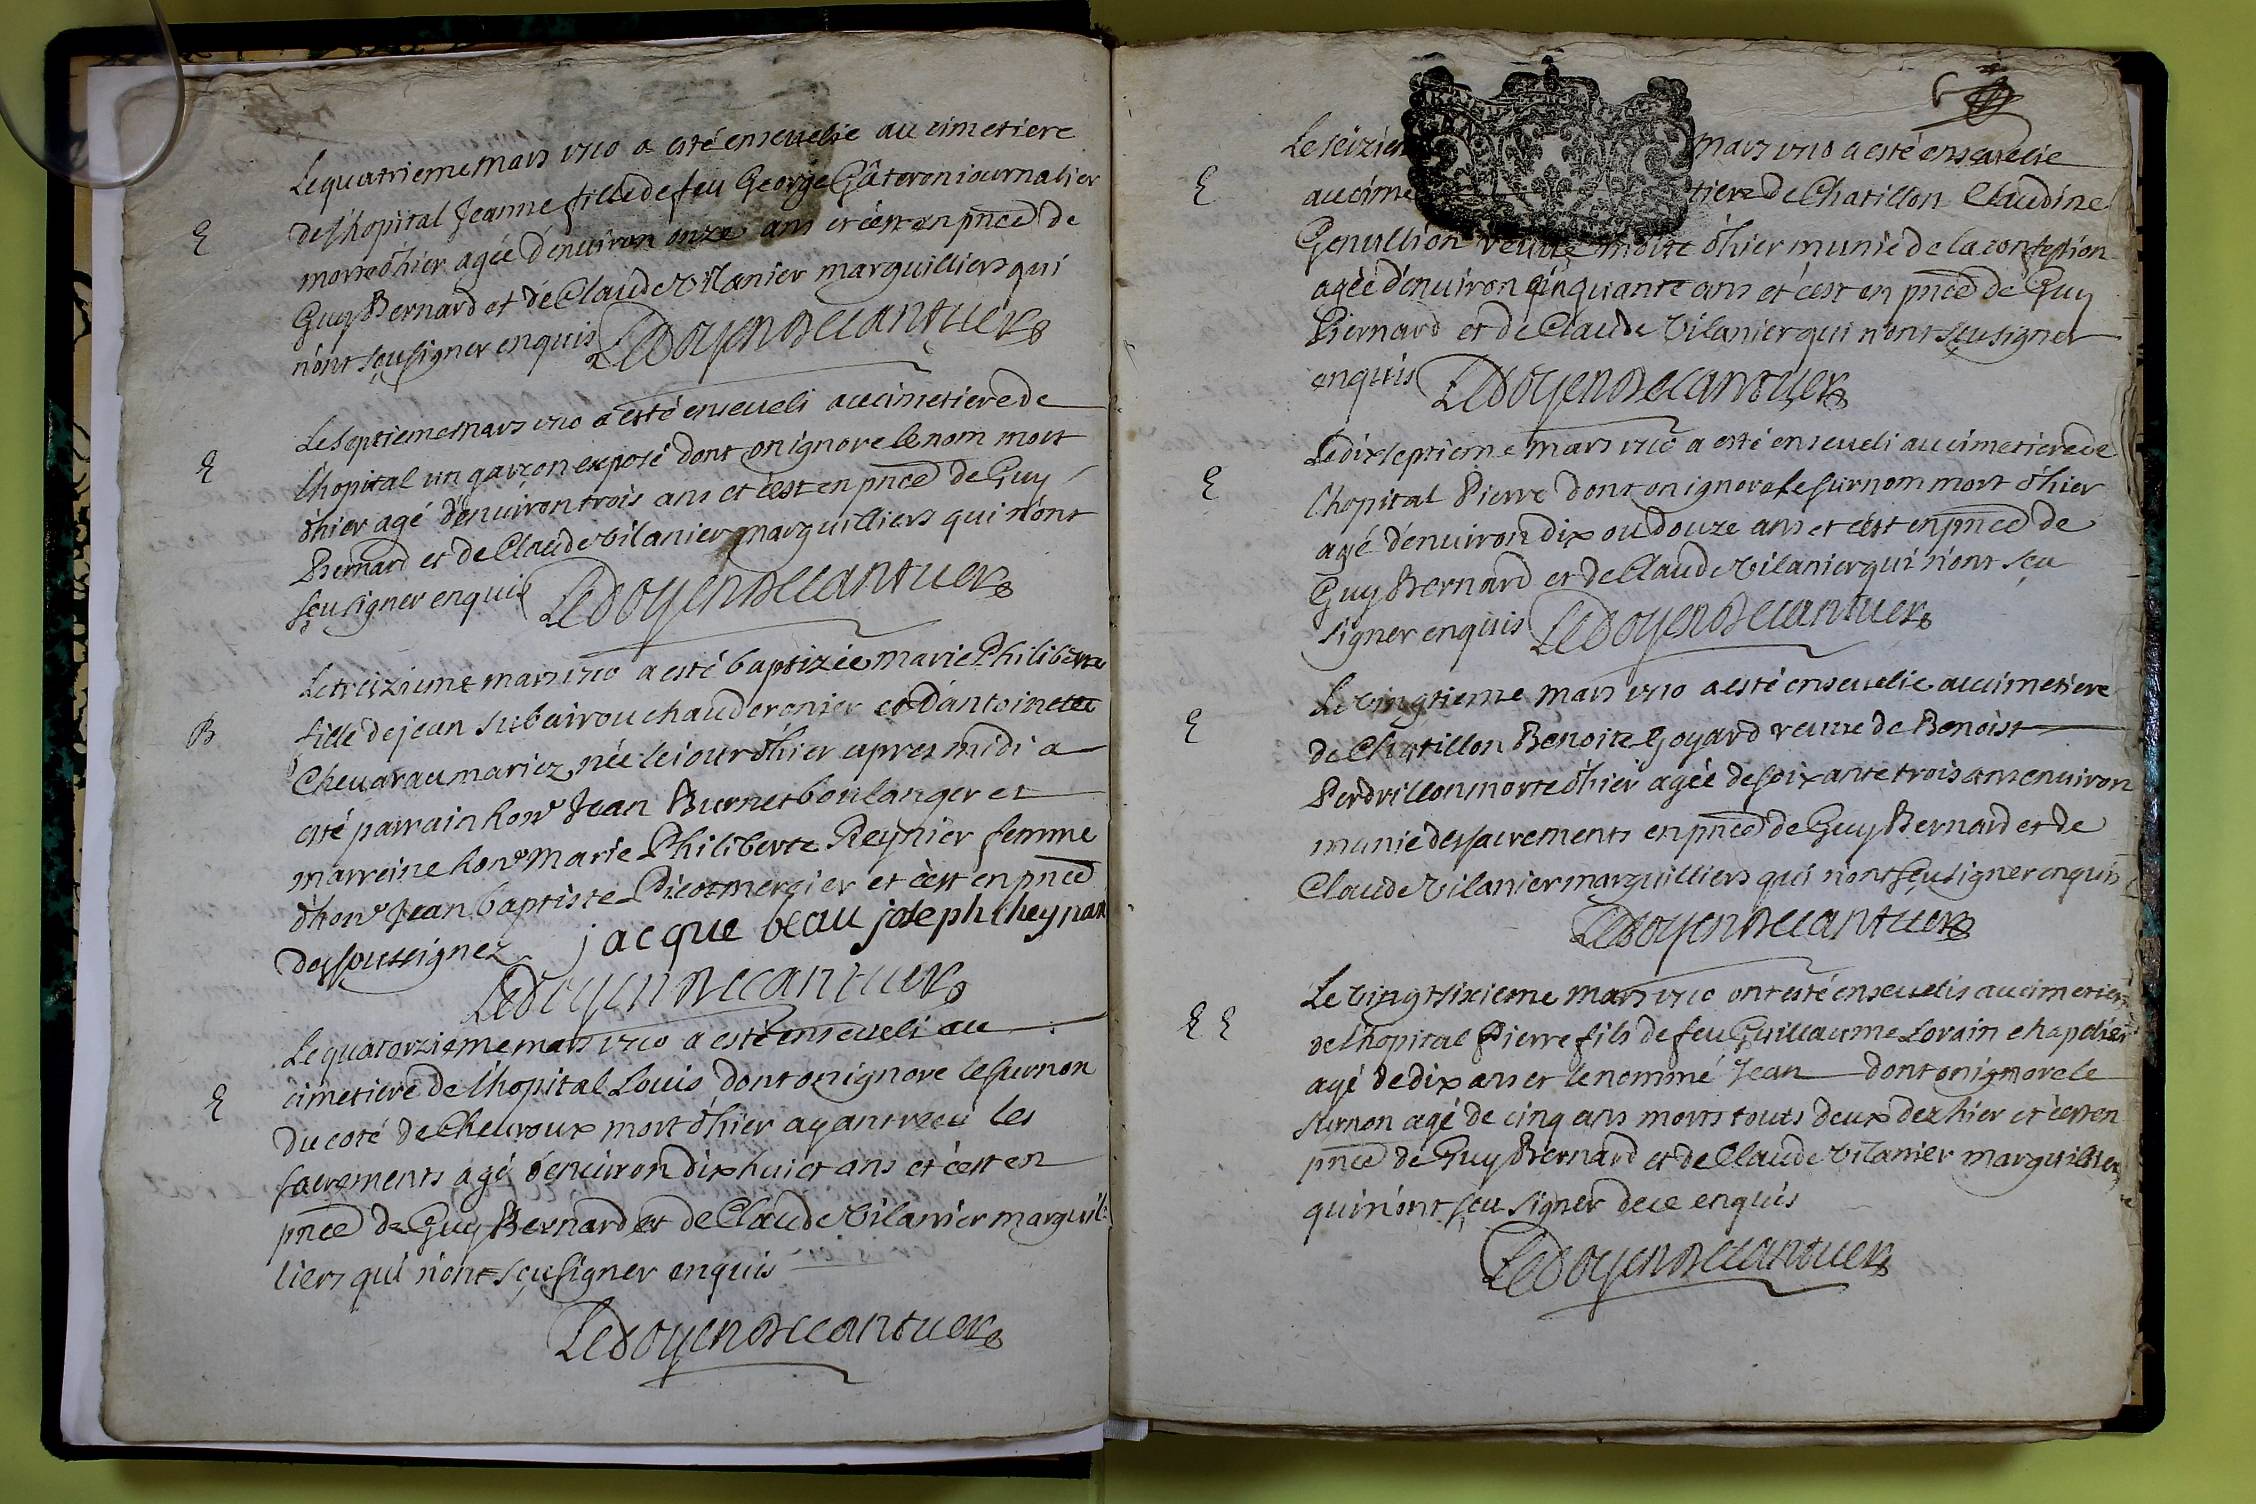 Le quatrieme mars 1710 a esté ensevelie au cimetiere
E
de l'hopital Jeanne fille de feu George Gâteron iournalier
morte d'hier agée d'environ onze ans et c'est en pnce de
Guy Bernard et de Claude Vilanier marguilliers qui
n'ont sçu signer enquis Le Doyen De cantuer
Le septieme mars 1710 a esté enseveli au cimetiere de
E
l'hopital un garçon exposé dont on ignore le nom mort
d'hier agé d'environ trois ans et c'est en pnce de Guy
Bernard et de Claude Vilanier marguilliers qui n'ont
sçu signer enquis Le Doyen De cantuer
Le treizieme mars 1710 a esté baptizée marie Philiberte
B
fille de jean subeirou chauderonier et d'antoinette
Chevarau mariez née le iour d'hier apres midi a
esté parrain honr Jean Burnet boulanger et
marreine hone Marie Philiberte Reynier femme
d'honr Jean baptiste Picot mercier et c'est en pnce
des soussignez jacque beau joseph cheynar
Le Doyen De cantuer
Le quatorzieme mars 1710 a esté enseveli au
E
cimetiere de l'hopital Louis dont on ignore le surnon
du coté de Chevroux mort d'hier ayant reçu les
sacrements agé d'environ dix huict ans et c'est en
pnce de Guy Bernard et de Claude Vilanier marguil
liers qui n'ont sçu signer enquis
Le Doyen De cantuer
6
Le seizie mars 1710 a esté ensevelie
E
au cime tiere de Chatillon Claudine
Genullion veuve morte d'hier munie de la confession
agée d'environ cinquante ans et c'est en pnce de Guy
Bernard et de Claude Vilanier qui n'ont sçu signer
enquis Le Doyen De cantuer
Le dix septieme mars 1710 a esté enseveli au cimetiere de
E
l'hopital Pierre dont on ignore le surnom mort d'hier
agé d'environ dix ou douze ans et c'est en pnce de
Guy Bernard et de Claude Vilanier qui n'ont sçu
signer enquis Le Doyen De cantuer
Le vingtieme mars 1710 a esté ensevelie au cimetiere
E
de Chatillon Benoite Goyard veuve de Benoist
Perdrillon morte d'hier agée de soixante trois ans environ
munie des sacrements en pnce de Guy Bernard et de
Claude Vilanier marguilliers qui n'ont sçu signer enquis
Le Doyen De cantuer
Le vingt sixieme mars 1710 ont esté ensevelis au cimetiere
E E
de l'hopital Pierre fils de feu Guillaume Lorain chapelier
agé de dix ans et le nommé Jean dont on ignore le
surnon agé de cinq ans morts touts deux des hier et c'est en
pnce de Guy Bernard et de Claude Vilanier marguilliers
qui n'ont sçu signer de ce enquis
Le Doyen De cantuer